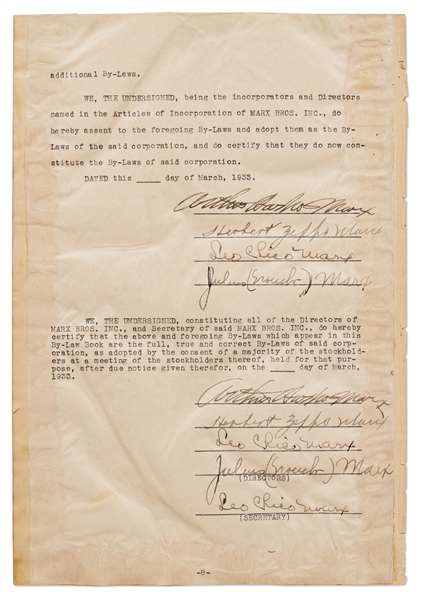 additional By-Laws.
WE, THE UNDERSIGNED, being the incorporators and Directors
named in the Articles of Incorporation of MARX BROS. INC., do
hereby assent to the foregoing By-Laws and adopt them as the By-
Laws of the said corporation, and do certify that they do now con-
stitute the By-Laws of said corporation.
DATED this ____ day of March, 1933.
Arthur Harpo Marx
Herbert Zeppo Marx
Leo Chico Marx
Julius (Groucho) Marx
WE, THE UNDERSIGNED, constituting all of the Directors of
MARX BROS. INC., and Secretary of said MARX BROS. INC., do hereby
certify that the above and foregoing By-Laws which appear in this
By-Law Book are the full, true and correct By-Laws of said corp-
oration, as adopted by the consent of a majority of the stockhold-
ers at a meeting of the stockholders thereof, held for that pur-
pose, after due notice given therefor, on the ____ day of March,
1933.
Arthur Harpo Marx
Herbert Zeppo Marx
Leo Chico Marx
Julius (Groucho) Marx
(DIRECTORS)
Leo Chico Marx
(SECRETARY)
-8-